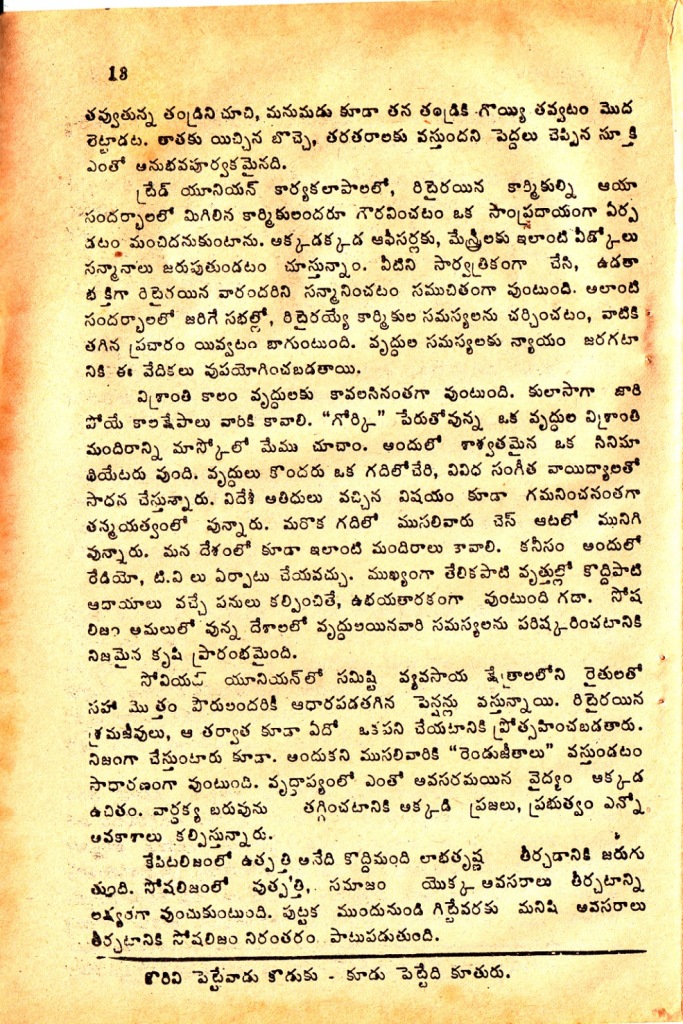 18
తవ్వుతున్న తండ్రిని చూచి, మనుమడు కూడా తన తండ్రికి గొయ్యి తవ్వటం మొద
లెట్టాడట. తాతకు యిచ్చిన బొచ్చె, తరతరాలకు వస్తుందని పెద్దలు చెప్పిన సూక్తి
ఎంతో అనుభవపూర్వకమైనది.
ట్రేడ్ యూనియన్ కార్యకలాపాలలో, రిటైరయిన కార్మికుల్ని ఆయా
సందర్భాలలో మిగిలిన కార్మికులందరూ గౌరవించటం ఒక సాంప్రదాయంగా ఏర్ప
డటం మంచిదనుకుంటాను. అక్కడక్కడ ఆఫీసర్లకు, మేస్త్రీలకు ఇలాంటి వీడ్కోలు
సన్మానాలు జరుపుతుండటం చూస్తున్నాం. వీటిని సార్వత్రికంగా చేసి, ఉడతా
భక్తిగా రిటైరయిన వారందరిని సన్మానించటం సముచితంగా వుంటుంది. అలాంటి
సందర్భాలలో జరిగే సభల్లో, రిటైరయ్యే కార్మికుల సమస్యలను చర్చించటం, వాటికి
తగిన ప్రచారం యివ్వటం బాగుంటుంది. వృద్ధుల సమస్యలకు న్యాయం జరగటా
నికి ఈ వేదికలు వుపయోగించబడతాయి.
విశ్రాంతి కాలం వృద్ధులకు కావలసినంతగా వుంటుంది. కులాసాగా జారి
పోయే కాలషేపాలు వారికి కావాలి. “గోర్కి” పేరుతోవున్న ఒక వృద్ధుల విశ్రాంతి
మందిరాన్ని మాస్కోలో మేము చూచాం. అందులో శాశ్వతమైన ఒక సినిమా
థియేటరు వుంది. వృద్ధులు కొందరు ఒక గదిలోచేరి, వివిధ సంగీత వాయిద్యాలతో
సాధన చేస్తున్నారు. విదేశీ అతిధులు వచ్చిన విషయం కూడా గమనించనంతగా
తన్మయత్వంలో వున్నారు. మరొక గదిలో ముసలివారు చెస్ ఆటలో మునిగి
వున్నారు. మన దేశంలో కూడా ఇలాంటి మందిరాలు కావాలి. కనీసం అందులో
రేడియో, టి.వి లు ఏర్పాటు చేయవచ్చు. ముఖ్యంగా తేలికపాటి వృత్తుల్లో కొద్దిపాటి
ఆదాయాలు వచ్చే పనులు కల్పించితే, ఉభయతారకంగా వుంటుంది గదా. సోష
లిజం అమలులో వున్న దేశాలలో వృద్ధులయినవారి సమస్యలను పరిష్కరించటానికి
నిజమైన కృషి ప్రారంభమైంది.
సోవియట్ యూనియన్‌లో సమిష్టి వ్యవసాయ షేత్రాలలోని రైతులతో
సహా మొత్తం పౌరులందరికీ ఆధారపడతగిన పెన్షన్లు వస్తున్నాయి. రిటైరయిన
శ్రమజీవులు, ఆ తర్వాత కూడా ఏదో ఒకపని చేయటానికి ప్రోత్సహించబడతారు.
నిజంగా చేస్తుంటారు కూడా. అందుకని ముసలివారికి “రెండుజీతాలు” వస్తుండటం
సాధారణంగా వుంటుంది. వృద్ధాప్యంలో ఎంతో అవసరమయిన వైద్యం అక్కడ
ఉచితం. వార్ధక్య బరువును తగ్గించటానికి అక్కడి ప్రజలు, ప్రభుత్వం ఎన్నో
అవకాశాలు కల్పిస్తున్నారు.
కేపిటలిజంలో ఉత్పత్తి అనేది కొద్దిమంది లాభతృష్ణ తీర్చడానికి జరుగు
తుంది. సోషలిజంలో వుత్పత్తి, సమాజం యొక్క అవసరాలు తీర్చటాన్ని
లక్ష్యంగా వుంచుకుంటుంది. పుట్టక ముందునుండి గిట్టేవరకు మనిషి అవసరాలు
తీర్చటానికి సోషలిజం నిరంతరం పాటుపడుతుంది.
కొరివి పెట్టేవాడు కొడుకు - కూడు పెట్టేది కూతురు.